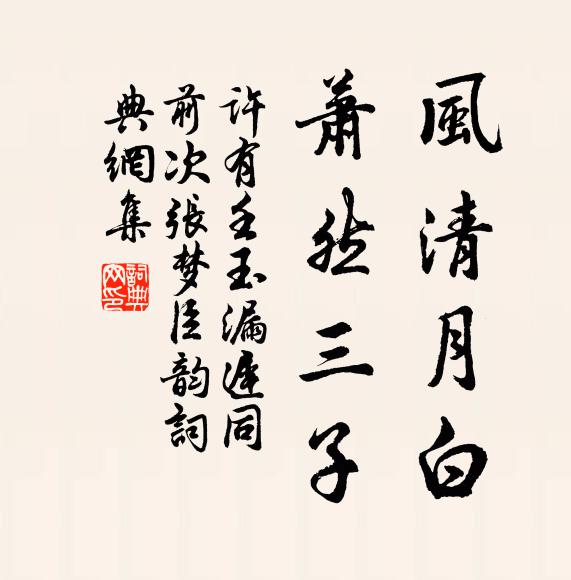 風清月白
蕭然三子
許有壬玉漏遲同
前次張梦臣韵詞
典網集
詞典網印